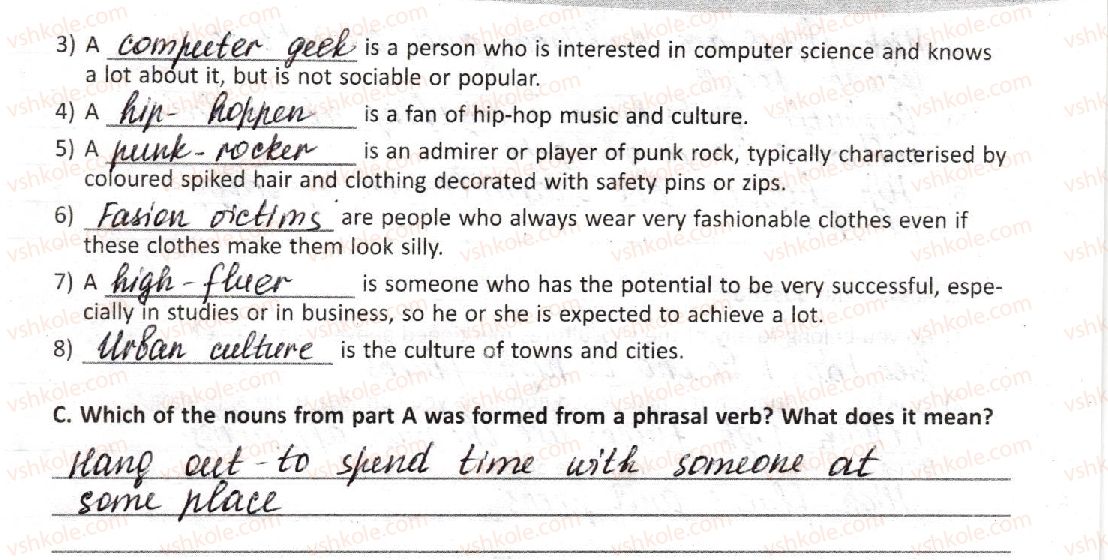 3) A computer geek is a person who is interested in computer science and knows
a lot about it, but is not sociable or popular.
4) A hip-hopper is a fan of hip-hop music and culture.
5) A punk-rocker is an admirer or player of punk rock, typically characterised by
coloured spiked hair and clothing decorated with safety pins or zips.
6) Fasion victims are people who always wear very fashionable clothes even if
these clothes make them look silly.
7) A high-fluer is someone who has the potential to be very successful, espe-
cially in studies or in business, so he or she is expected to achieve a lot.
8) Urban culture is the culture of towns and cities.
C. Which of the nouns from part A was formed from a phrasal verb? What does it mean?
Hang out - to spend time with someone at
some place